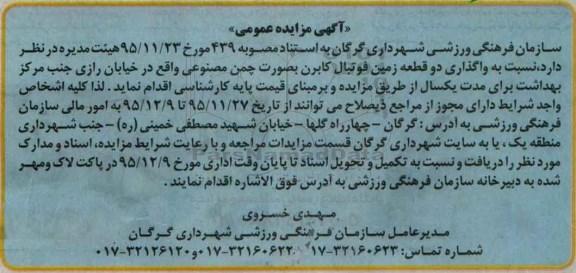 «آگهی مزایده عمومی»
سازمان فرهنگی ورزشی شهرداری گرگان به استناد مصوبه ۴۳۹ مورخ ۹۵/۱۱/۲۳ هیئت مدیره در نظر
دارد، نسبت به واگذاری دو قطعه زمین فوتبال کابرن بصورت چمن مصنوعی واقع در خیابان رازی جنب مرکز
بهداشت برای مدت یکسال از طریق مزایده و برمبنای قیمت پایه کارشناسی اقدام نماید . لذا کلیه اشخاص
واجد شرایط دارای مجوز از مراجع ذیصلاح می توانند از تاریخ ۹۵/۱۱/۲۷ تا ۹۵/۱۲/۹ به امور مالی سازمان
فرهنگی ورزشی به آدرس : گرگان - چهارراه گلها - خیابان شهید مصطفی خمینی (ره) - جنب شهرداری
منطقه یک ، یا به سایت شهرداری گرگان قسمت مزایدات مراجعه و با رعایت شرایط مزایده، اسناد و مدارک
مورد نظر را دریافت و نسبت به تکمیل و تحویل اسناد تا پایان وقت اداری مورخ ۹۵/۱۲/۹ در پاکت لاک ومهر
شده به دبیرخانه سازمان فرهنگی ورزشی به آدرس فوق الاشاره اقدام نمایند .
مهدی خسروی
مدیرعامل سازمان فرهنگی ورزشی شهرداری گرگان
شماره تماس: ۳۲۱۶۰۶۲۳-۰۱۷ ۳۲۱۶۰۶۲۲-۰۱۷و۳۲۱۲۶۱۲۰-۰۱۷